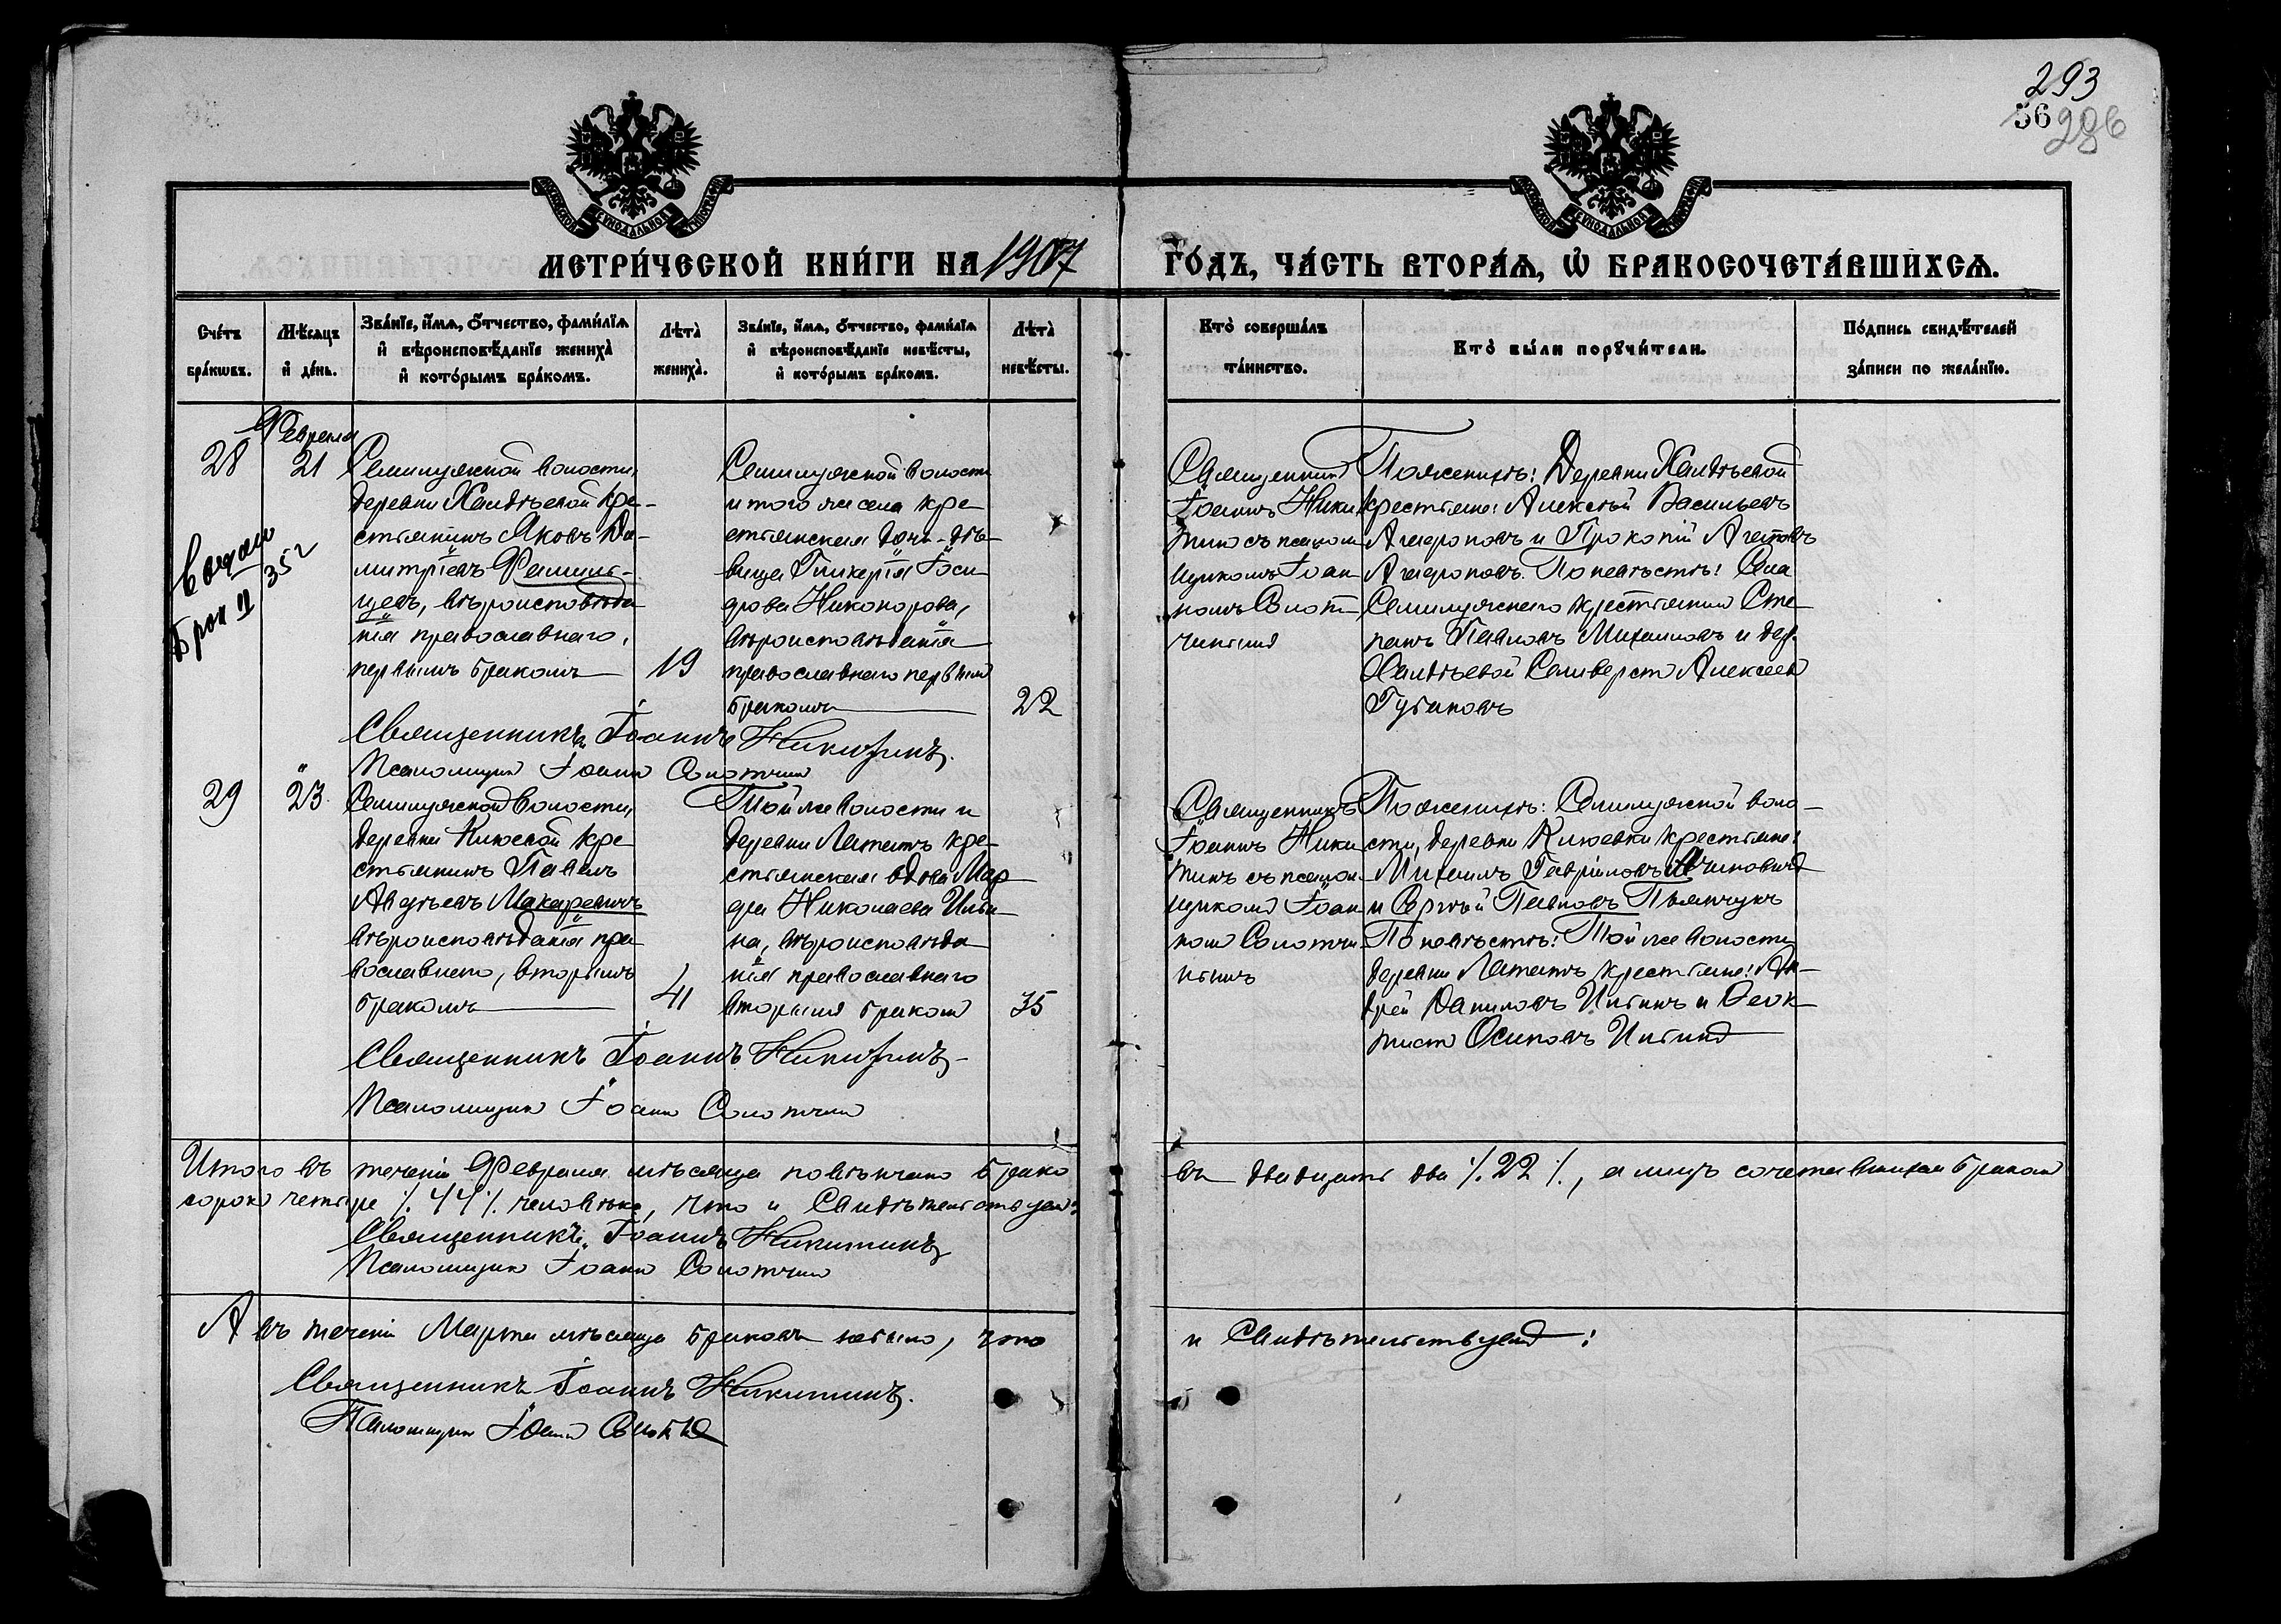 293
56 286
МЕТРИ́ЧЕСКОЙ КНИ́ГИ НА 1907 ГО́ДЪ, ЧА́СТЬ ВТОРА́Я, Ѡ БРАКОСОЧЕТА́ВШИХСЯ.
Сче́тъ бра́кѡвъ.
Мѣ́сяцъ и де́нь.
Зва́нїе, и́мя, о́тчество, фами́лїя и вѣроисповѣ́данїе жениха̀ и кото́рымъ бра́комъ.
Лѣта̀ жениха̀.
Зва́нїе, и́мя, о́тчество, фами́лїя и вѣроисповѣ́данїе невѣ́сты, и кото́рымъ бра́комъ.
Лѣта̀ невѣ́сты.
Кто̀ соверша́лъ та́инство.
Кто̀ бы́ли порꙋчи́тели.
По́дпись свидѣ́телей за́писи по жела́нїю.
Февраля
28
21
Семилужской волости,
деревни Халдѣевой кре-
стьянинъ Яковъ Ди-
митріевъ
вѣроисповѣда
нія православнаго,
первымъ бракомъ
19
Семилужской волости
и того же села кре
стьянская дочь-дѣ-
вица Гликерія Іоси
фова Никонорова,
вѣроисповѣданія
православнаго первымъ
бракомъ
22
Священникъ
Іоаннъ Ники
тинъ съ псалом
щикомъ Іоан
номъ Солот
чинымъ
По женихѣ: Деревни Халдѣевой
крестьяне: Алексѣй Васильевъ
Агафоновъ и Прокопій
Агафоновъ. По невѣстѣ: Села
Семилужнаго крестьянин Сте
панъ Павловъ Михаиловъ и дер.
Халдѣевой Селиверст Алексеев
Губановъ
Брак II
35 г
Священникъ Іоаннъ Никитинъ.
Псаломщик Іоанн Солотчин
29
23
Семилужской волости,
деревни Киюской кре
стьянинъ Павелъ
Авдѣевъ Макаревичъ
вѣроисповѣданія пра
вославнаго, вторымъ
бракомъ
41
Той же волости и
деревни Лататъ кре-
стьянская вдова Мар
фа Николаева Ильи
на, вѣроисповѣда
нія православнаго
вторымъ браком
35
Священникъ
Іоаннъ Ники
тинъ съ псалом
щиком Іоан
ном Солотчи
нымъ
По женихѣ: Семилужской воло-
сти, деревни Киюевки крестьяне:
Михаилъ Гавріиловъ
и Сергѣй Павловъ Пьянчукъ
По невѣстѣ: Той же волости
деревни Лататъ крестьяне: Ан-
дрей Даниловъ Ильинъ и Феок
тист Осиповъ Ильинъ
Священникъ Іоаннъ Никитинъ
Псаломщик Іоанн Солотчин
Итого въ теченіи Февраля мѣсяца повѣнчано брако въ двадцать два ./. 22 ./., а лицъ сочетавшихся браком
сорок четыре ./. 44 ./. человѣка, что и Свидѣтельствуем:
Священникъ Іоаннъ Никитинъ
Псаломщик Іоанн Солотчин
А въ теченіи Марта мѣсяца браковъ не было, что и Свидѣтельствуем:
Священникъ Іоаннъ Никитинъ.
Псаломщик Іоанн